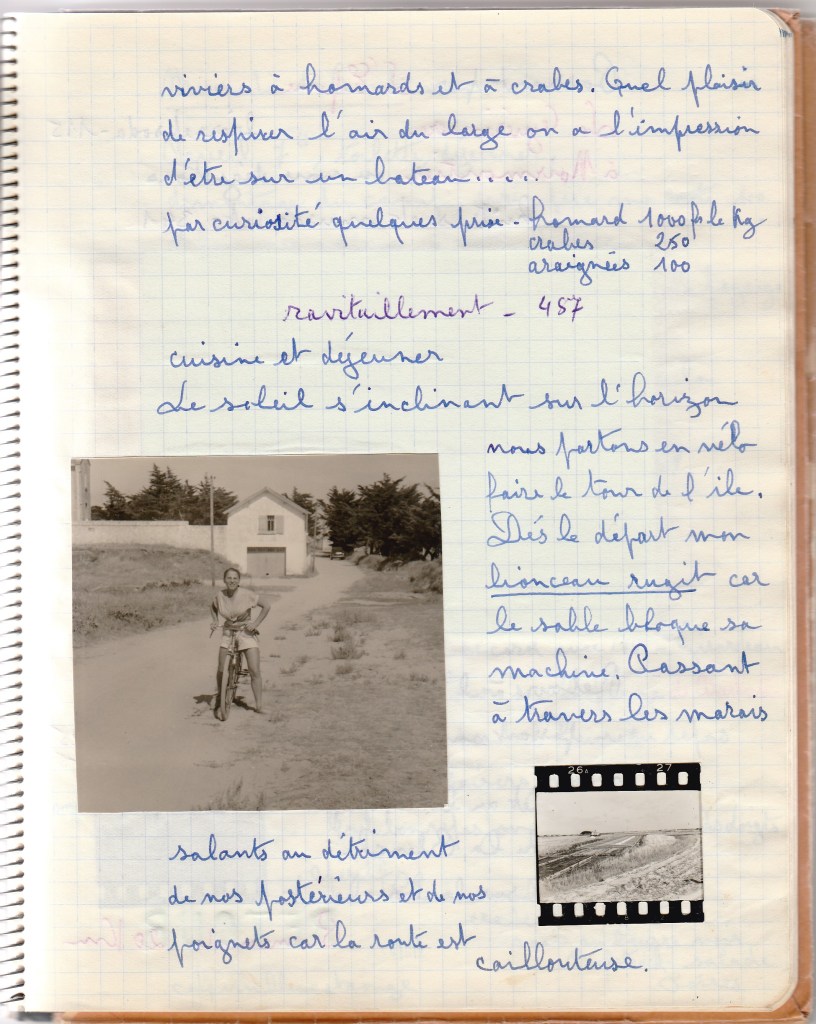 viviers à homards et à crabes. Quel plaisir
de respirer l'air du large on a l'impression
d'être sur un bateau.....
par curiosité quelques prise - homard 1000 fs le Kg
crabes 250
araignées 100
ravitaillement - 457
cuisine et déjeuner
Le soleil s'inclinant sur l'horizon
nous partons en vélo
faire le tour de l'ile.
Dés le départ mon
lionceau rugit car
le sable bloque sa
machine. Passant
à travers les marais
26A 27
salants au détriment
de nos postérieurs et de nos
poignets car la route est
caillouteuse.